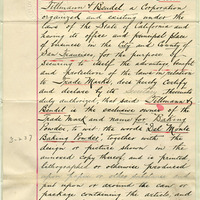 Tillmann & Bendel a Corporation
organized and existing under the
laws of the State of California and
having its office and principal place
of business in the City and County of
San Francisco, for the purpose of
securing to itself the advantage benefit
and protection of the laws in relation
to Trade Marks, does hereby certify
and declare by its Thomas
duly authorized, that said Tillmann &
Bendel is the exclusive owner of the
Trade Mark and name for Baking
Powder, to wit: the words Del Monte
Baking Powder, together with the
design or picture shown in the
annexed copy hereof, and is printed
lithographed or otherwise produced
upon Paper or other substance and
put upon or around the can or
package containing the article, and